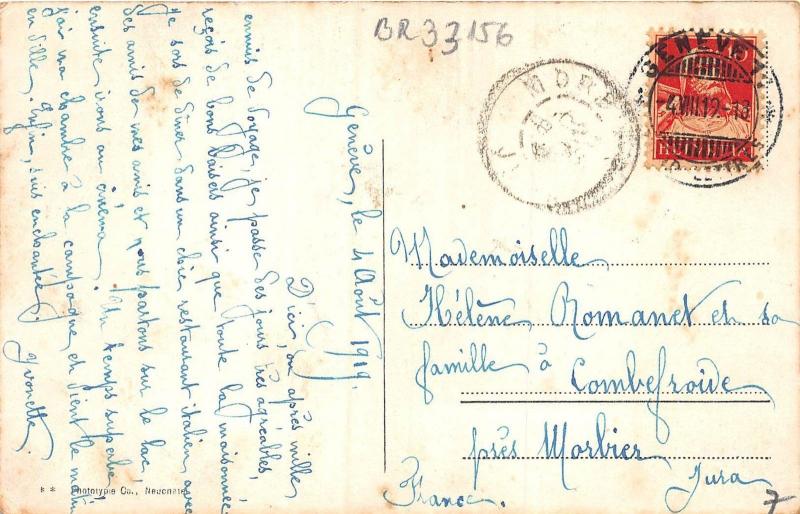 BR 33156
GENÈVE
4.VIII.19.-18
MOREZ
Genève, le 4 Août 1919.
D'ici, où après mille
ennuis de voyage, je passe des jours très agréables,
reçois de bons baisers ainsi que toute la maisonnée.
Je sors de dîner dans un chic restaurant italien, avec
des amis de mes amis et nous partons sur le lac,
ensuite irons au cinéma. Un temps superbe,
j'ai ma chambre à la campagne et vient le matin
en ville. Enfin, suis enchantée. Yvonette.
Mademoiselle
Hélène Romanet et sa
famille à
Combefroide
près Morbier
Jura
France.
** Phototypie Co., Neuchâtel
7